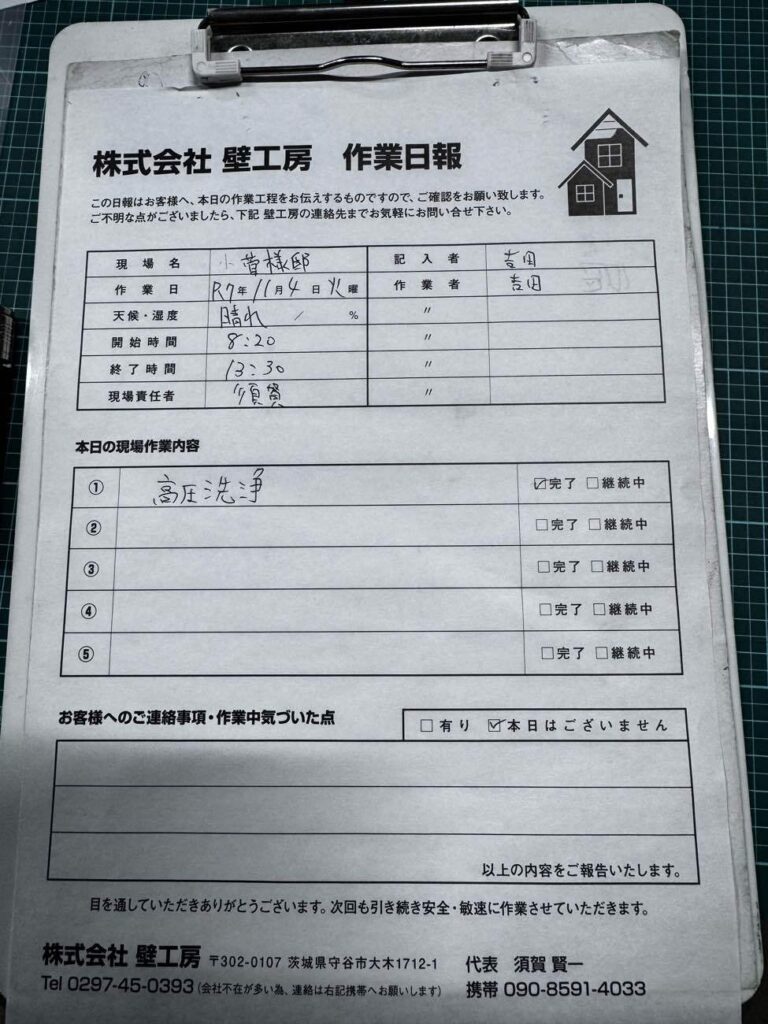 株式会社 壁工房 作業日報
この日報はお客様へ、本日の作業工程をお伝えするものですので、ご確認をお願い致します。
ご不明な点がございましたら、下記 壁工房の連絡先までお気軽にお問い合せ下さい。
現場名 小菅様邸 記入者 吉田
作業日 R7年11月4日火曜 作業者 吉田
天候・湿度 晴れ / % 〃
開始時間 8:20 〃
終了時間 13:30 〃
現場責任者 須賀 〃
本日の現場作業内容
① 高圧洗浄 ☑完了 □継続中
② □完了 □継続中
③ □完了 □継続中
④ □完了 □継続中
⑤ □完了 □継続中
お客様へのご連絡事項・作業中気づいた点 □有り ☑本日はございません
以上の内容をご報告いたします。
目を通していただきありがとうございます。次回も引き続き安全・敏速に作業させていただきます。
株式会社 壁工房 〒302-0107 茨城県守谷市大木1712-1 代表 須賀 賢一
Tel 0297-45-0393 (会社不在が多い為、連絡は右記携帯へお願いします) 携帯 090-8591-4033